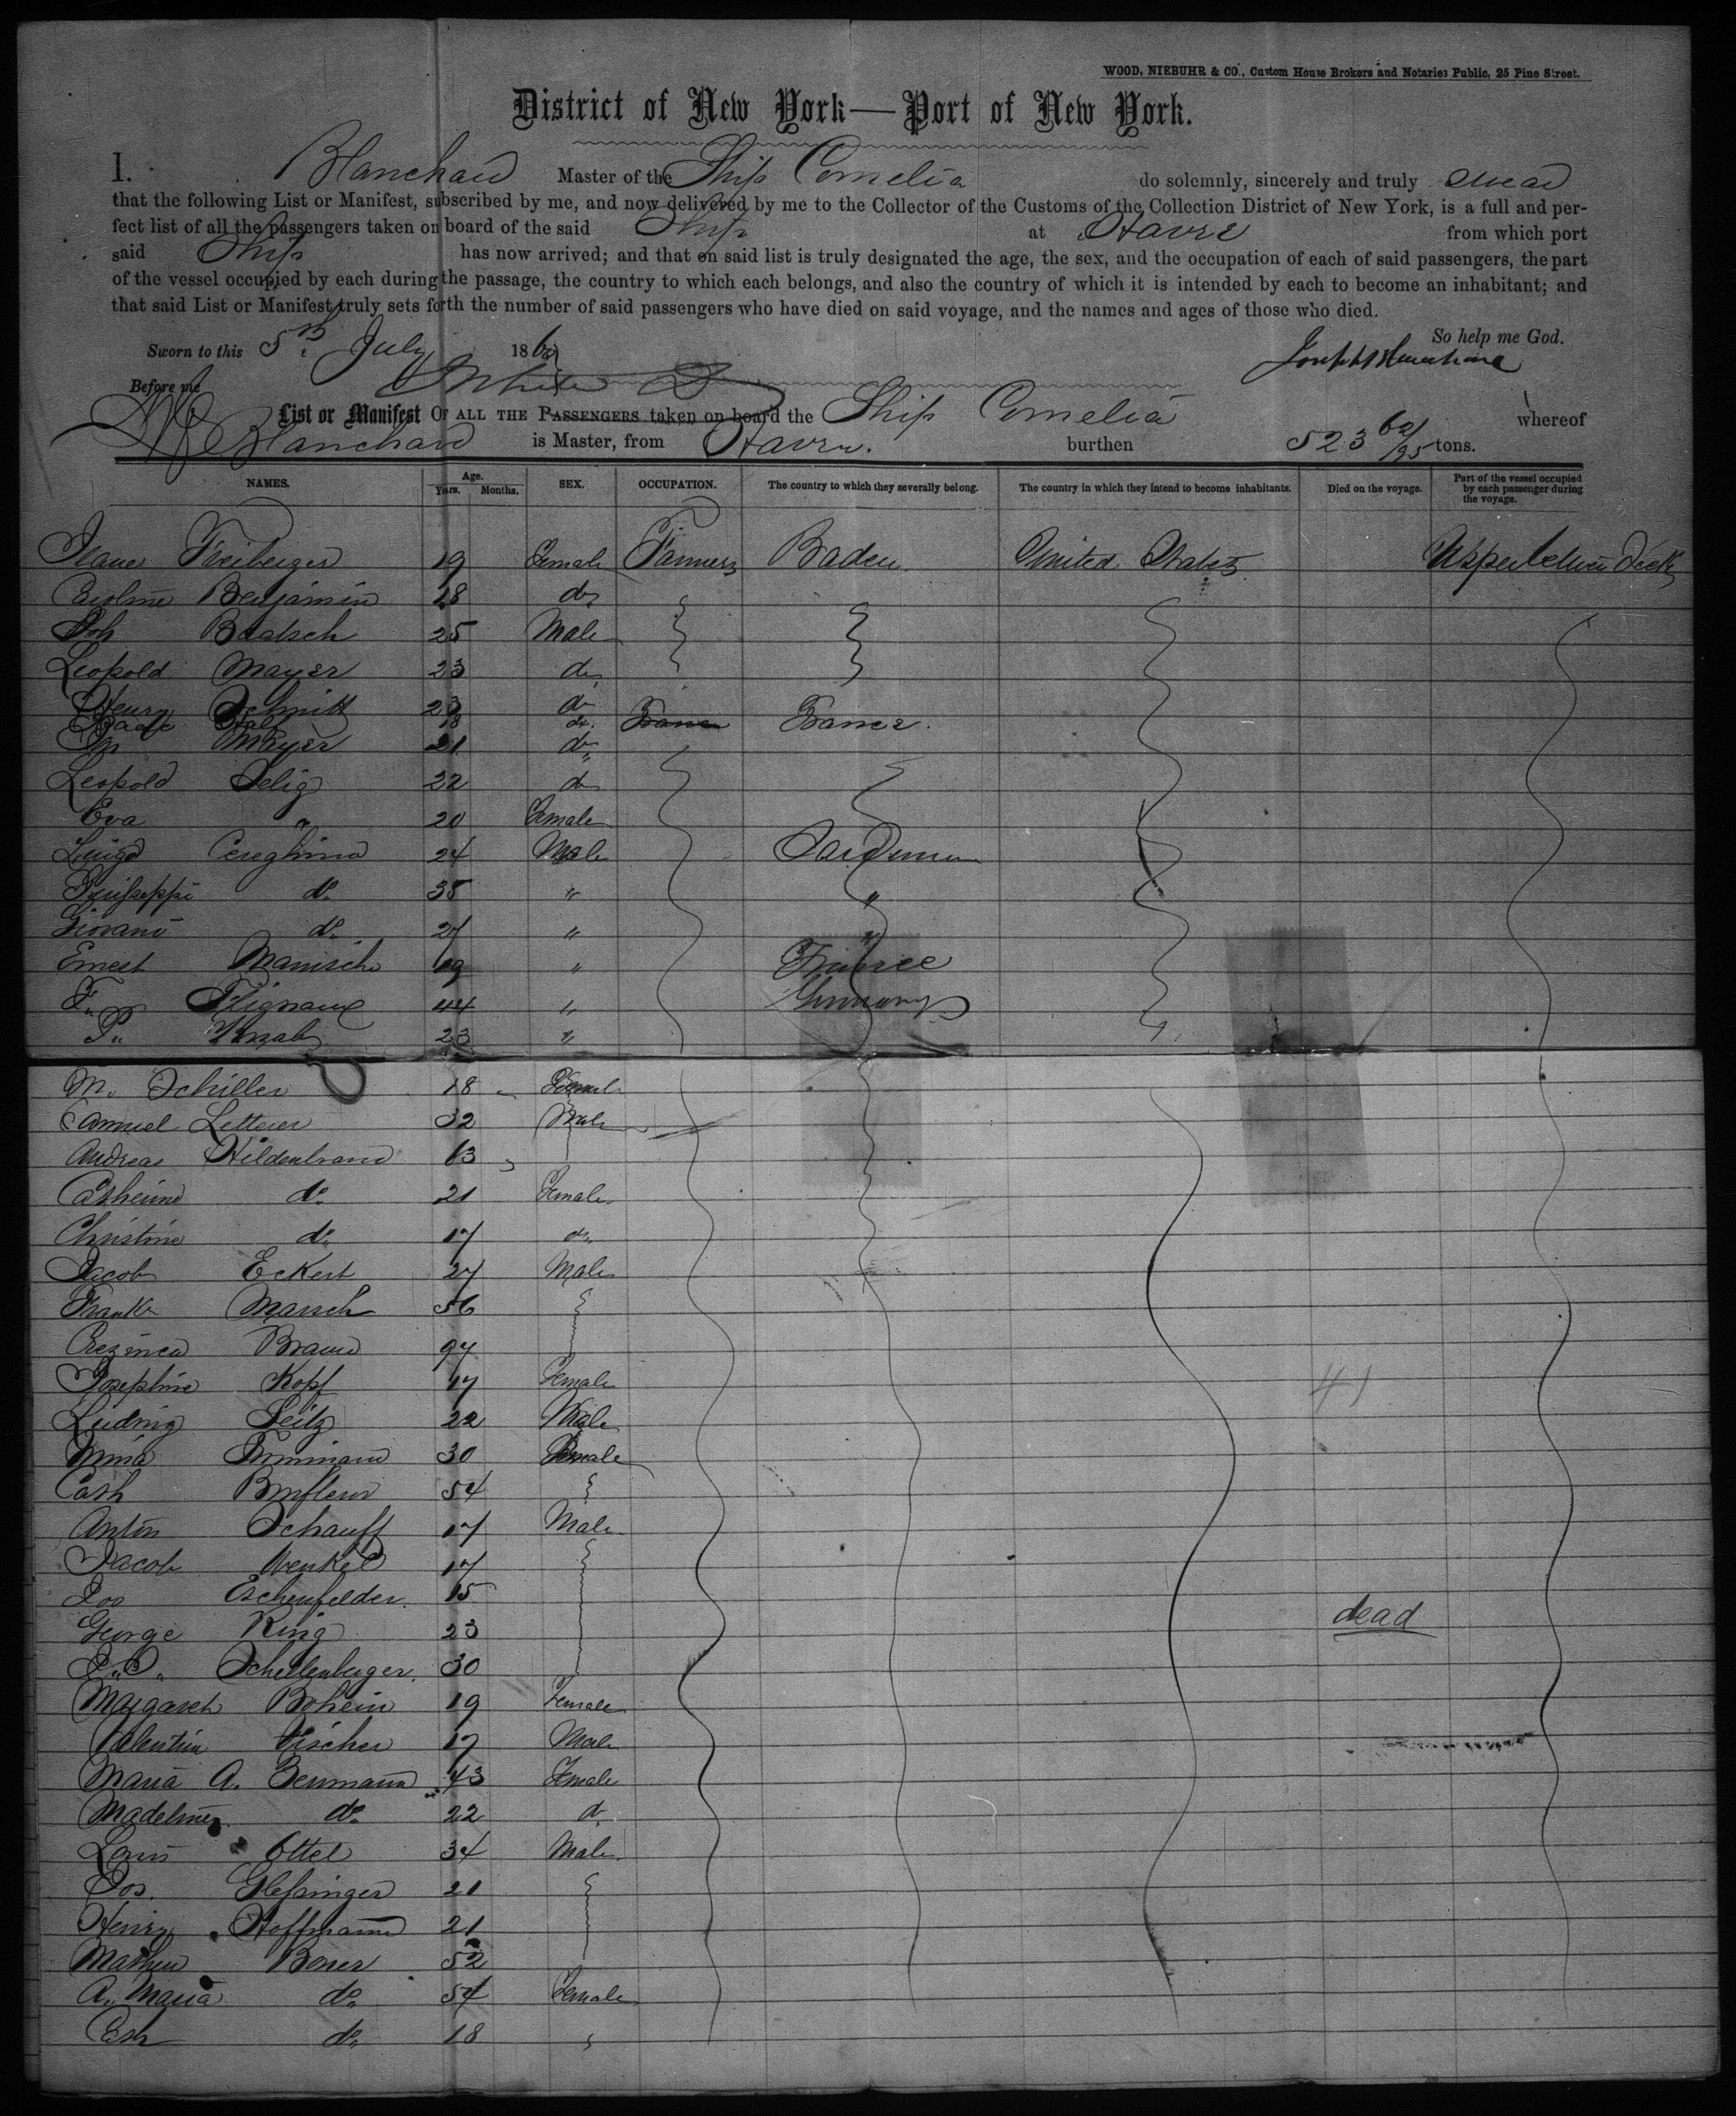 WOOD, NIEBUHR & CO., Custom House Brokers and Notaries Public, 25 Pine Street.
District of New York—Port of New York.
I. Blanchard Master of the Ship Cornelia do solemnly, sincerely and truly swear
that the following List or Manifest, subscribed by me, and now delivered by me to the Collector of the Customs of the Collection District of New York, is a full and per-
fect list of all the passengers taken on board of the said Ship at Havre from which port
said Ship has now arrived; and that on said list is truly designated the age, the sex, and the occupation of each of said passengers, the part
of the vessel occupied by each during the passage, the country to which each belongs, and also the country of which it is intended by each to become an inhabitant; and
that said List or Manifest truly sets forth the number of said passengers who have died on said voyage, and the names and ages of those who died.
So help me God.
Sworn to this 5th July 186
Before me
List or Manifest OF ALL THE PASSENGERS taken on board the Ship Cornelia whereof
Blanchard is Master, from Havre. burthen 523 62/95 tons.
NAMES. Age. Years. Months. SEX. OCCUPATION. The country to which they severally belong. The country in which they intend to become inhabitants. Died on the voyage. Part of the vessel occupied by each passenger during the voyage.
Freiberger 19 Female Farmers Baden. United States Upper between Deck
Caroline Benjamin 28 do
Joh Baatsch 25 Male
Leopold Mayer 23 do
Henry Schmitt 23 do
18 do France.
Mayer 21 do
Leopold Selig 22 do
Eva " 20 Female
Luigi 24 Male
Guiseppi do 38 "
Giovani do 27 " "
Ernest Manisch 19 " France
F. 44 " Germany
P. 23 "
M. Schiller 18 Female
Samuel Letterer 32 Male
Andreas Hildenbrand 63
Catherine do 21 Female
Christine do 17 do
Jacob Eckert 27 Male
Frank Marsch 56
Braun
Josephine Kopf 17 Female
Ludwig Seitz 22 Male
30 Female
Cath 54
Anton Schauff 17 Male
Jacob Wenkel 17
Jos Eschenfelder. 15
George King 23 dead
Schellenberger. 30
Margareth 19 Female
Valentin Fischer 17 Male
Maria A. 43 Female
Madeline do 22 do
Louis Ottel 34 Male
Jos. Glessinger 21
Henry Hoffmann 21
Mathew 52
A. Maria do 54 Female
Cath do 18
41